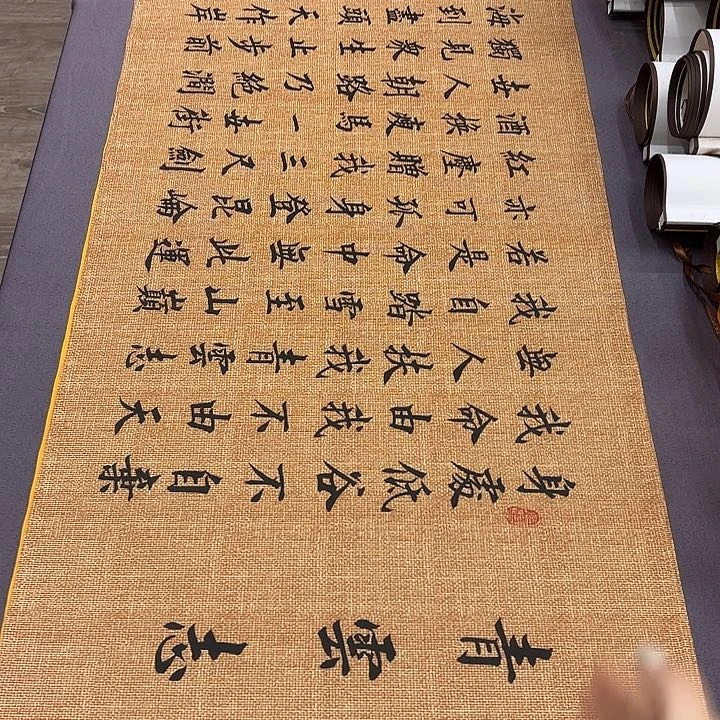 青雲志
身處低谷不自棄
我命由我不由天
無人扶我青雲志
我自踏雪至山巔
若是命中無此運
亦可孤身登昆崙
紅塵贈我三尺劍
酒換瘦馬一世街
世人朝路乃絕澗
獨見眾生止步前
海到盡頭天作岸